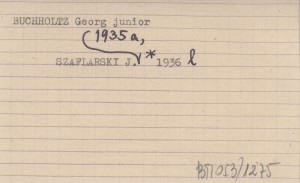 BUCHHOLTZ Georg junior
1935a,
SZAFLARSKI J. * 1936 l
BTI 053/1275